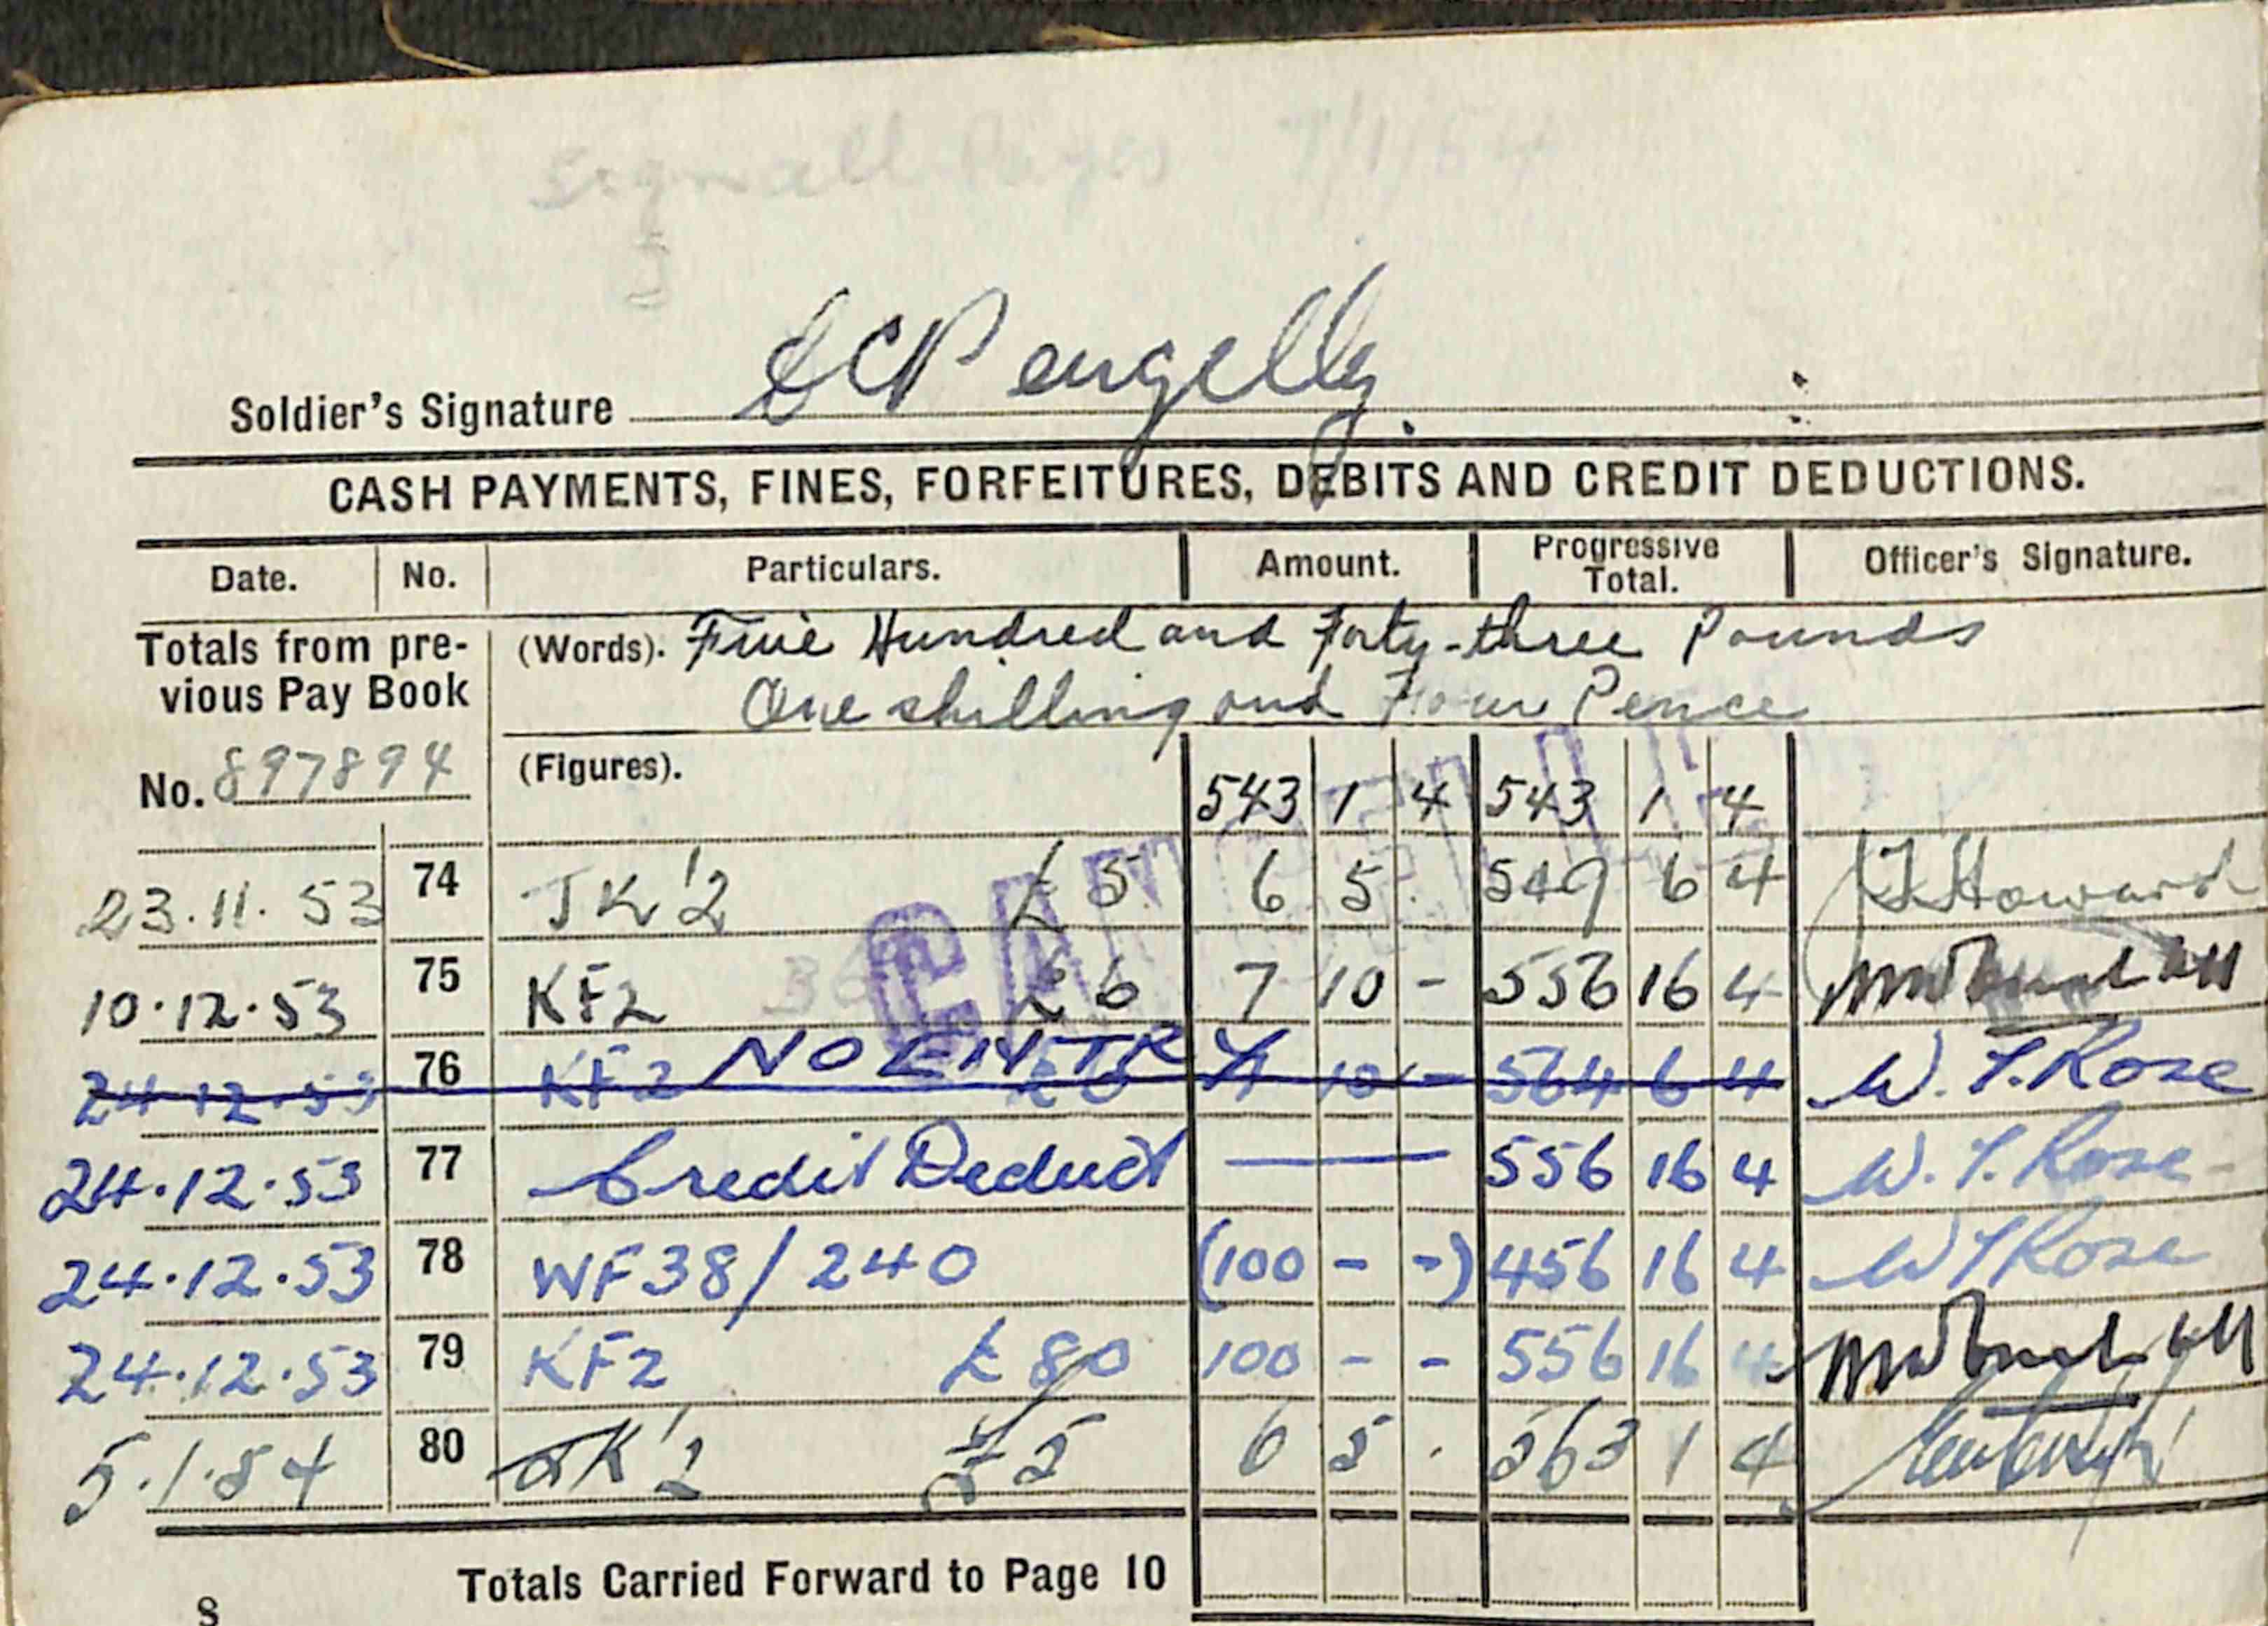 Sign all Pages 7/1/54
Soldier's Signature
CASH PAYMENTS, FINES, FORFEITURES, DEBITS AND CREDIT DEDUCTIONS.
Date. No. Particulars. Amount. Progressive Total. Officer's Signature.
Totals from previous Pay Book (Words). Five Hundred and Forty-three Pounds
One shilling and Four Pence
No. 897894 (Figures). 543 1 4 543 1 4
CANCELLED
23.11.53 74 JK'2 £5 6 5 . 549 6 4 Howard
10.12.53 75 KF2 £6 7 10 - 556 16 4
24.12.53 76 KF2 £6 NO ENTRY 7 10 - 564 6 4 W. T. Rose
24.12.53 77 Credit Deduct — 556 16 4 W. T. Rose
24.12.53 78 WF38/240 (100 - -) 456 16 4 W T Rose
24.12.53 79 KF2 £80 100 - - 556 16 4
5.1.54 80 JK'2 £5 6 5 . 563 1 4
Totals Carried Forward to Page 10
8